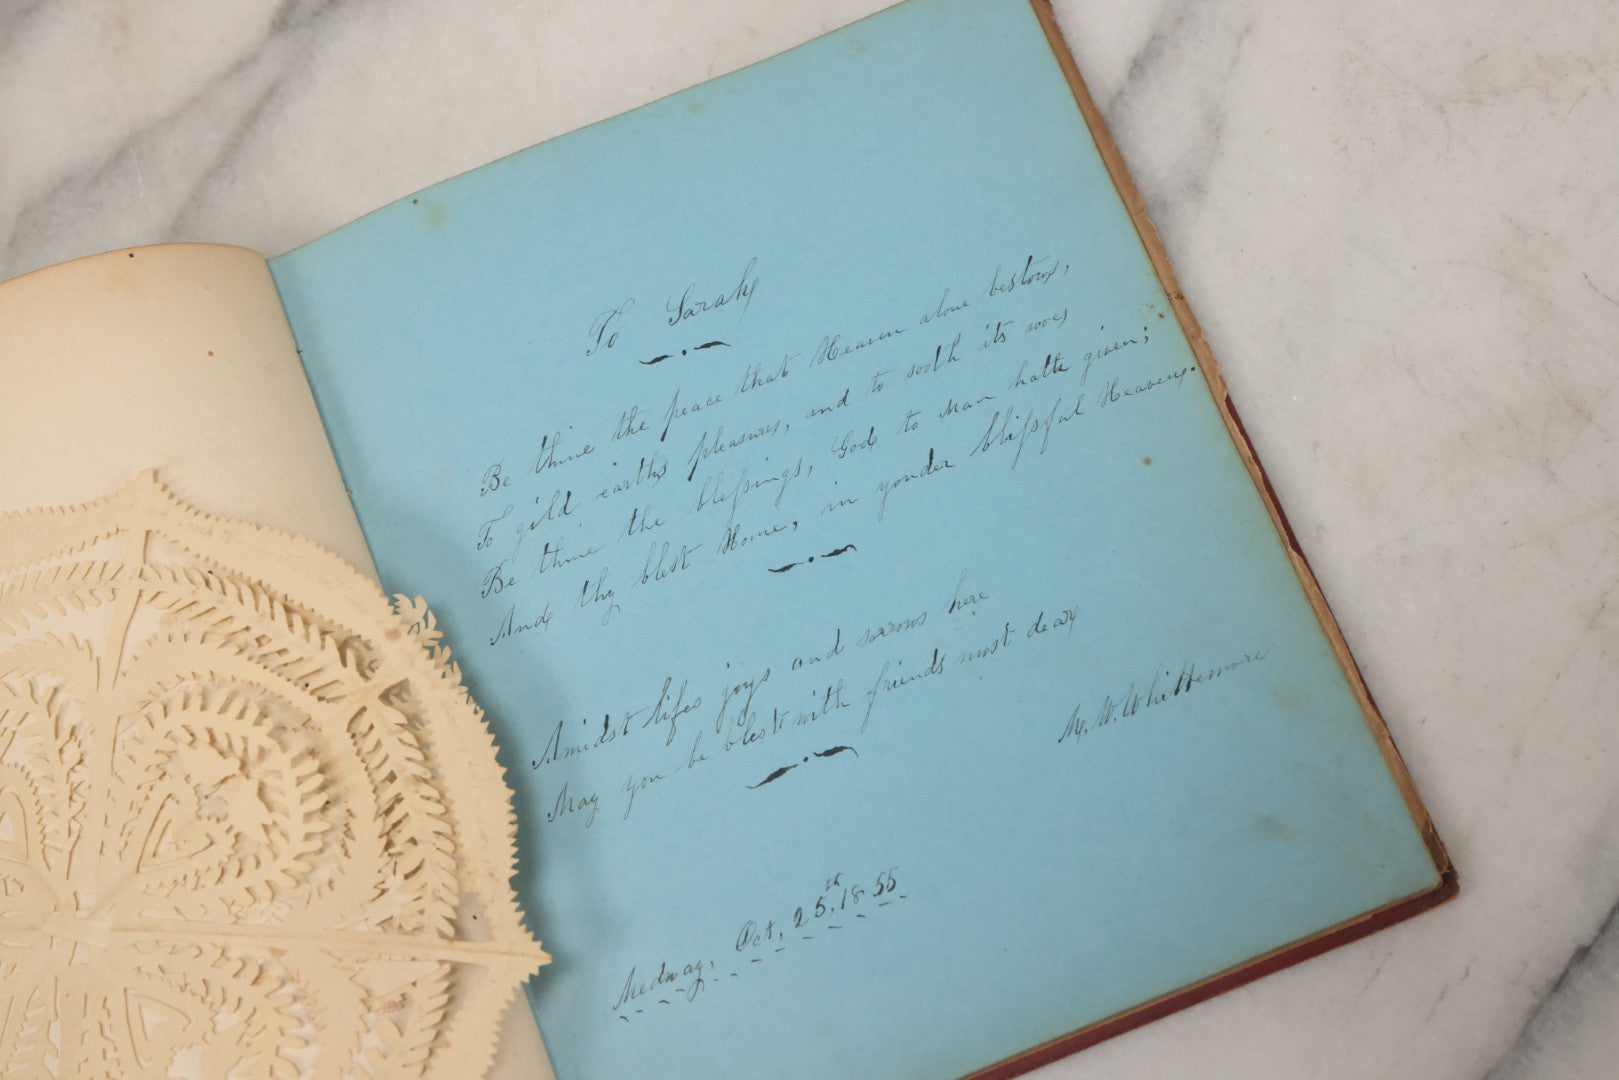 To Sarah
Be thine the peace that Heaven alone bestows,
To gild earths pleasures, and to sooth its woes
Be thine the blessings, God to Man hath given;
And thy blest Home, in yonder blissful Heavens.
Amidst lifes joys and sorrows here
May you be blest with friends most dear
M. W. Whittemore
Medway, Oct, 25th, 1855